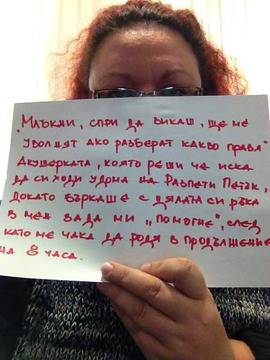 "Млъкни, спри да викаш, ще ме
уволнят ако разберат какво правя"
Акушерката, която реши че иска
да си ходи удома на Разпети Петък,
докато бъркаше с цялата си ръка
в мен зада ми "помогне", след
като ме чака да родя в продължение
на 8 часа.